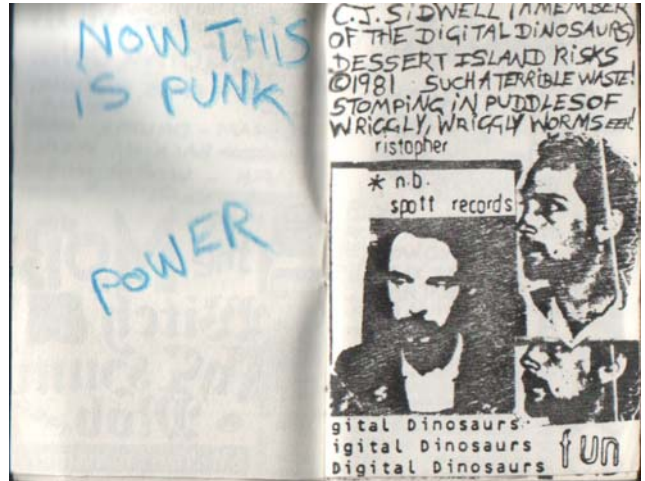 NOW THIS
IS PUNK
POWER
C.J. SIDWELL (A MEMBER
OF THE DIGITAL DINOSAURS)
DESSERT ISLAND RISKS
©1981 SUCH A TERRIBLE WASTE!
STOMPING IN PUDDLES OF
WRIGGLY, WRIGGLY WORMS EEK!
ristopher
* n.b.
spott records
gital Dinosaurs
igital Dinosaurs
Digital Dinosaurs
fun